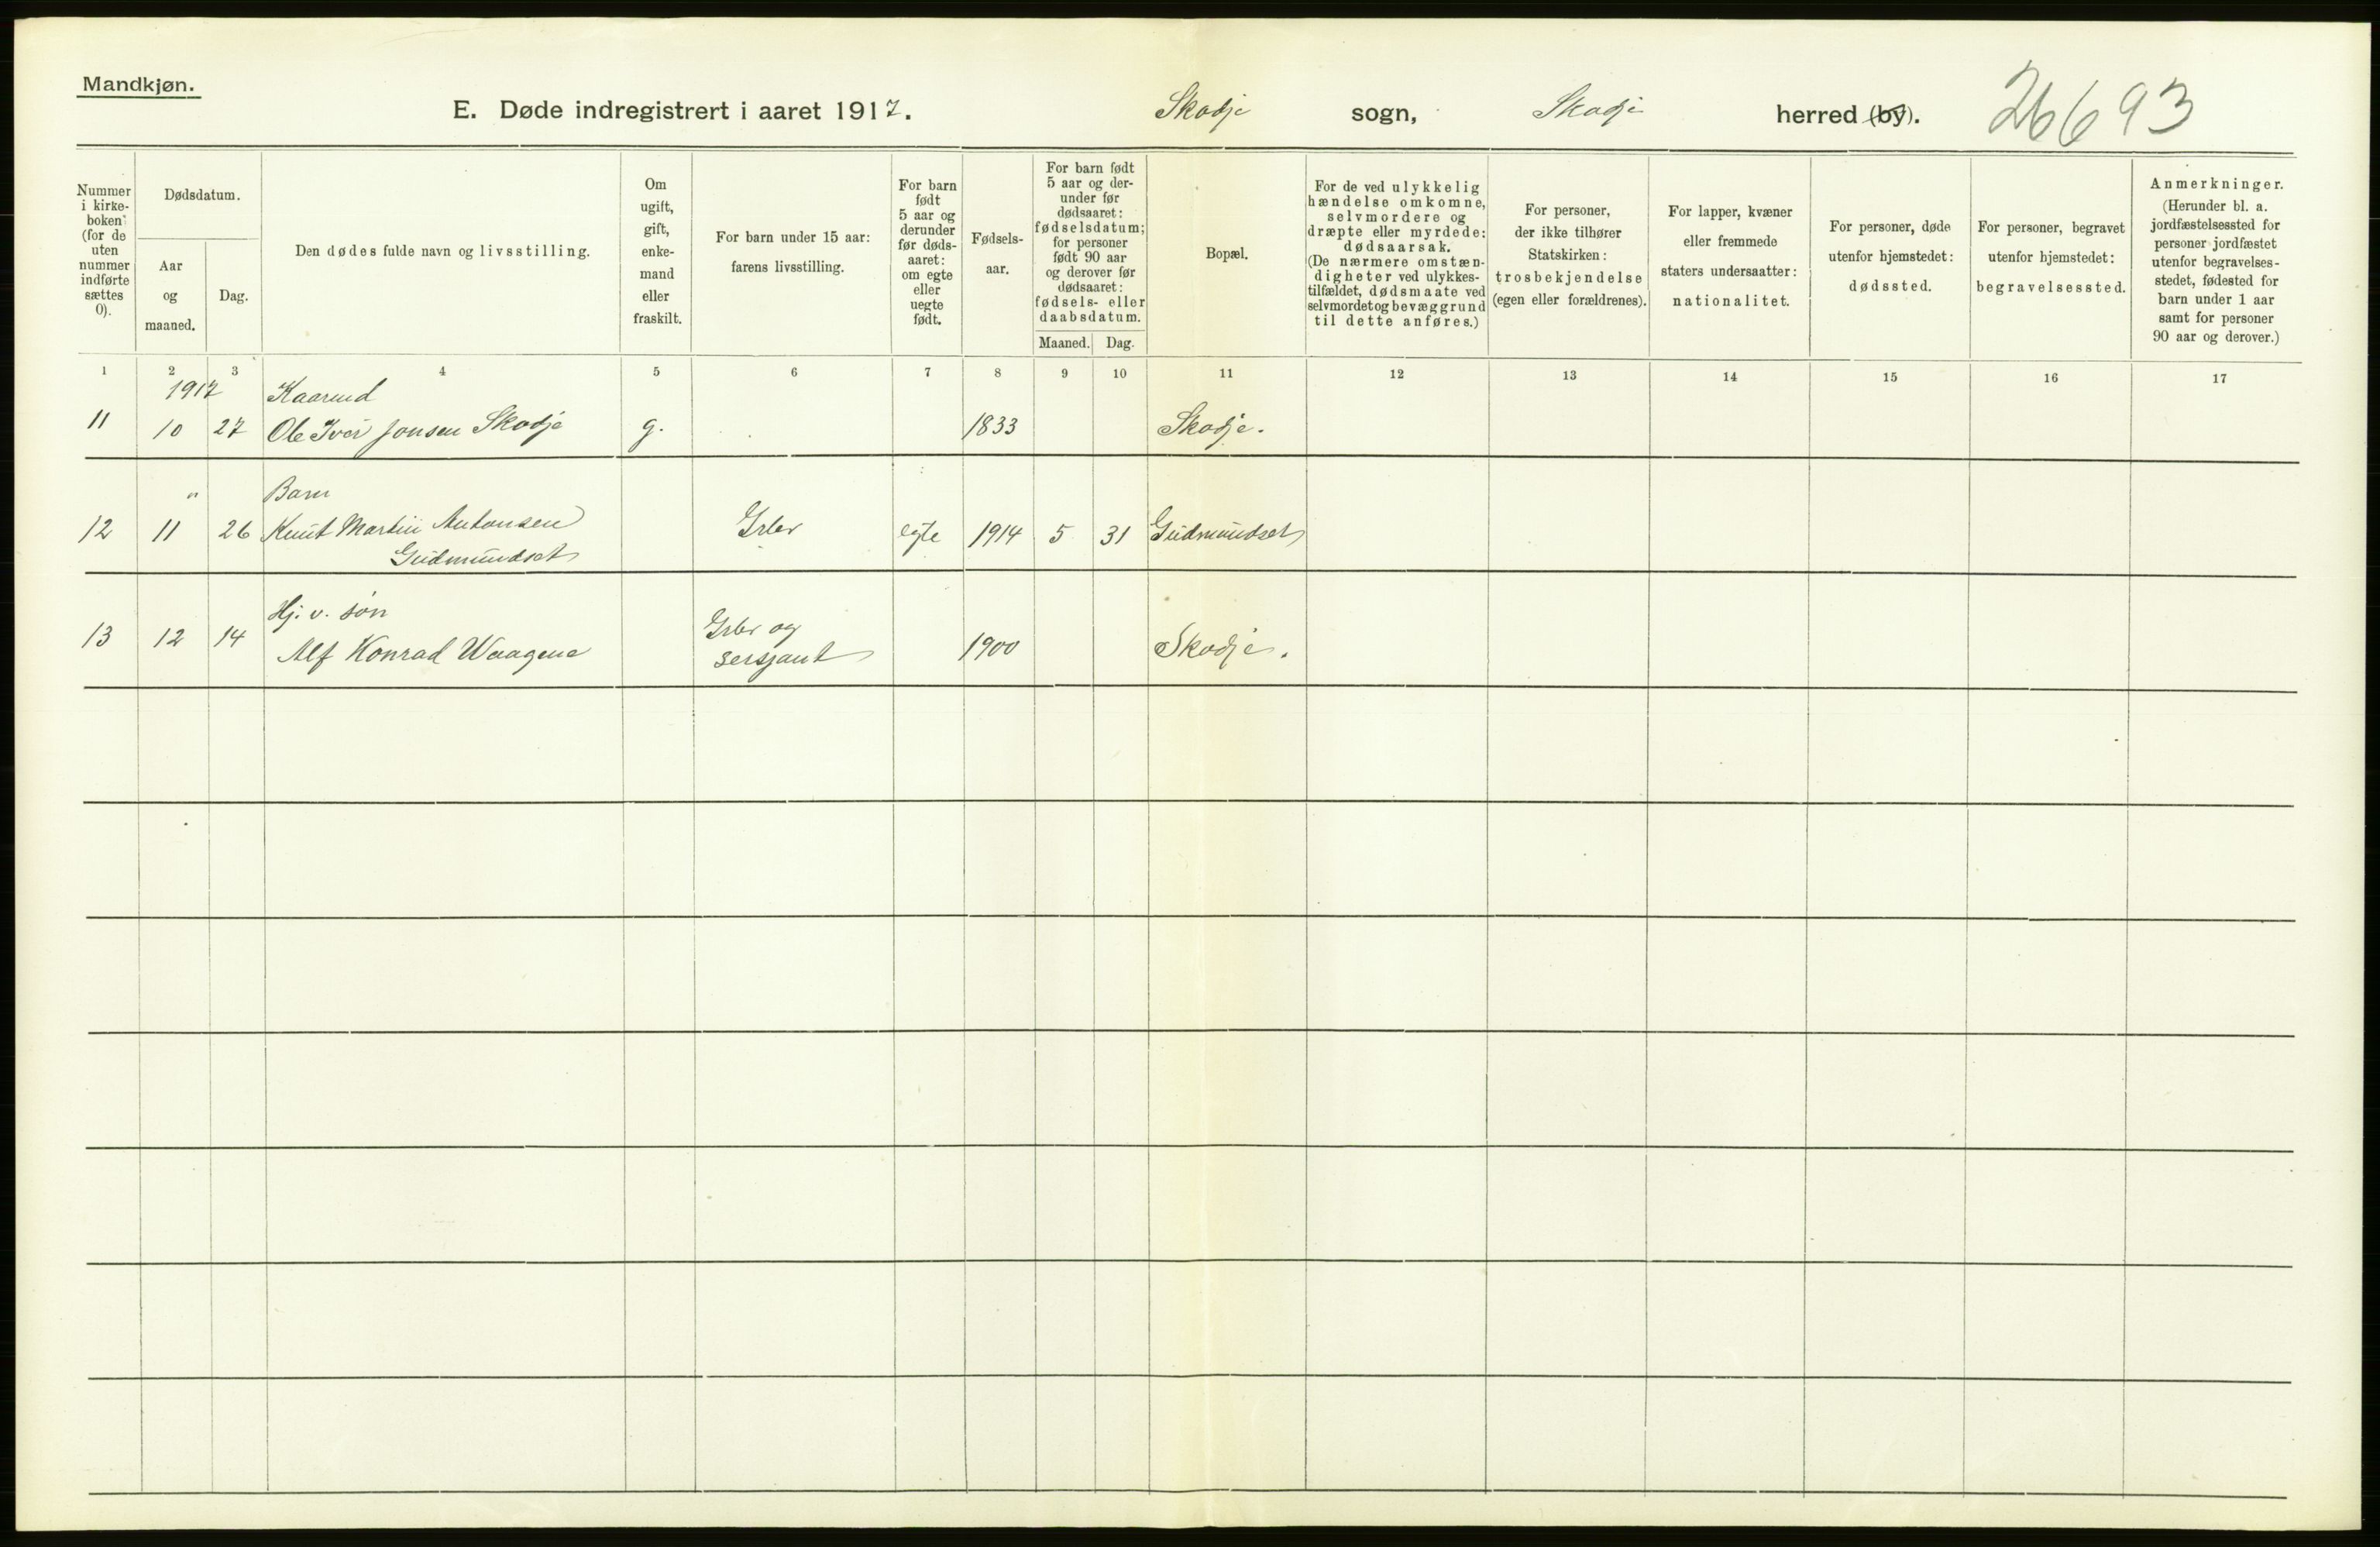 Mandkjøn.
E. Døde indregistrert i aaret 1917. Skodje sogn, Skodje herred (by). 26693
Nummer i kirkeboken (for de uten nummer indførte sættes 0).
Dødsdatum.
Aar og maaned.
Dag.
Den dødes fulde navn og livsstilling.
Om ugift, gift, enkemand eller fraskilt.
For barn under 15 aar: farens livsstilling.
For barn født 5 aar og derunder før dødsaaret: om egte eller uegte født.
Fødselsaar.
For barn født 5 aar og derunder før dødsaaret: fødselsdatum; for personer født 90 aar og derover før dødsaaret: fødsels- eller daabsdatum.
Maaned. Dag.
Bopæl.
For de ved ulykkelig hændelse omkomne, selvmordere og dræpte eller myrdede: dødsaarsak. (De nærmere omstændigheter ved ulykkestilfældet, dødsmaate ved selvmordet og bevæggrund til dette anføres.)
For personer, der ikke tilhører Statskirken: trosbekjendelse (egen eller forældrenes).
For lapper, kvæner eller fremmede staters undersaatter: nationalitet.
For personer, døde utenfor hjemstedet: dødssted.
For personer, begravet utenfor hjemstedet: begravelsessted.
Anmerkninger. (Herunder bl. a. jordfæstelsessted for personer jordfæstet utenfor begravelsesstedet, fødested for barn under 1 aar samt for personer 90 aar og derover.)
1 2 3 4 5 6 7 8 9 10 11 12 13 14 15 16 17
1917 Kaarmd
11 10 27 Ole Iver Jonsen Skodje g. 1833 Skodje.
" Barn
12 11 26 Knut Martin Antonsen Grbr egte 1914 5 31 Gudmundset
Gudmundset
Hj. v. søn
13 12 14 Alf Konrad Waagene Grbr og sersjant 1900 Skodje.